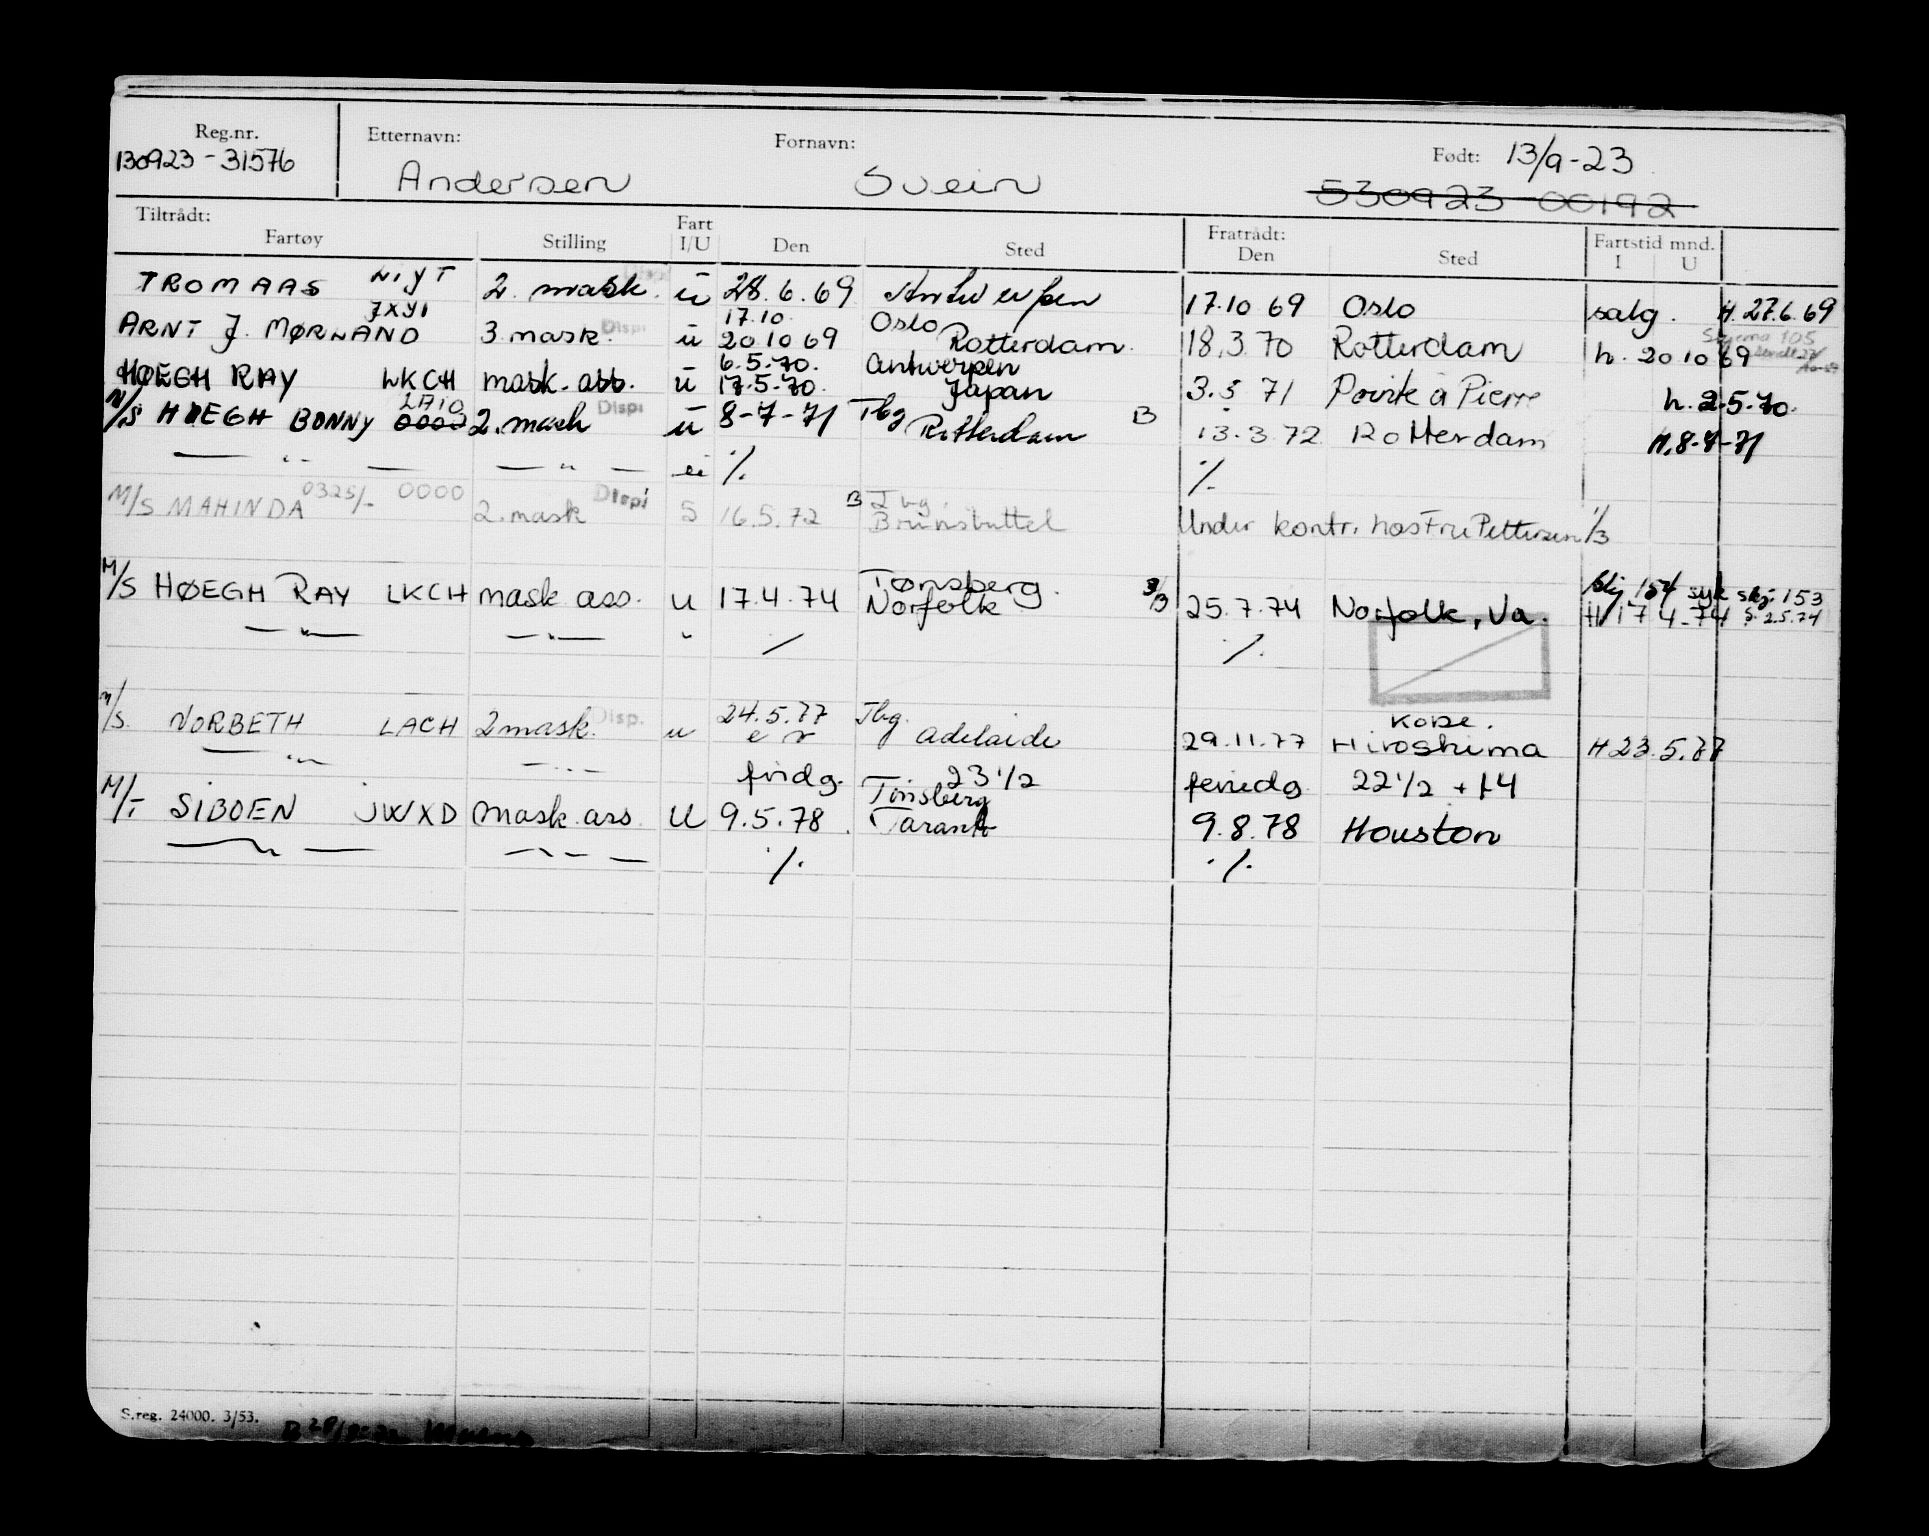 Reg.nr. Etternavn: Fornavn: Født: 13/9-23
130923-31576 Andersen Svein 530923 00192
Tiltrådt: Fart Fratrådt: Fartstid mnd.
Fartøy Stilling I/U Den Sted Den Sted I U
TROMAAS 2. mask. u 28.6.69 Antwerpen 17.10 69 Oslo salg. H. 27.6.69
JXYI 17.10. Oslo Skjema 105
ARNT J. MØRLAND 3 mask. Disp. u 20 10 69 Rotterdam. 18.3.70 Rotterdam h. 20 10 69
6.5.70. Antwerpen
HØEGH RAY LKCH mask. ass. u 17.5.70. Japan 3.5 71 Pointe à Pierre h. 2.5.70.
LAIO Dispi Tbg
M/S HØEGH BONNY 0000 2. mask u 8-7-71 Rotterdam B 13.3.72 Rotterdam H. 8-7-71
— " — — " — ei ·/. ·/.
M/S MAHINDA 0325/- 0000 2. mask Dispi S 16.5.72 B Tbg. Brunsbüttel Under kontr. hos Fru Pettersen 1/3
Tønsberg. skj 154 syk skj. 153
M/S HØEGH RAY LKCH mask ass. u 17.4.74 Norfolk 25.7.74 Norfolk, Va. H 17 4-74 2.5.74
— " — — " — " / ·/.
24.5.77 Tbg. Kobe.
M/S. NORBETH LACH 2 mask. Disp. u Adelaide 29.11.77 Hiroshima H 23.5.77
— " — — " — 23 1/2 feriedg 22 1/2 + 14
Tønsberg
M/T SIBOEN JWXD mask. ass. U 9.5.78. 9.8.78 Houston
— " — — " — ·/. ·/.
S.reg. 24000. 3/53.